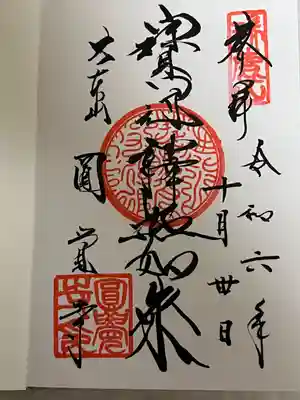 奉拝
令和六年
十月卅日
寶冠釋迦如来
大本山
圓覚寺